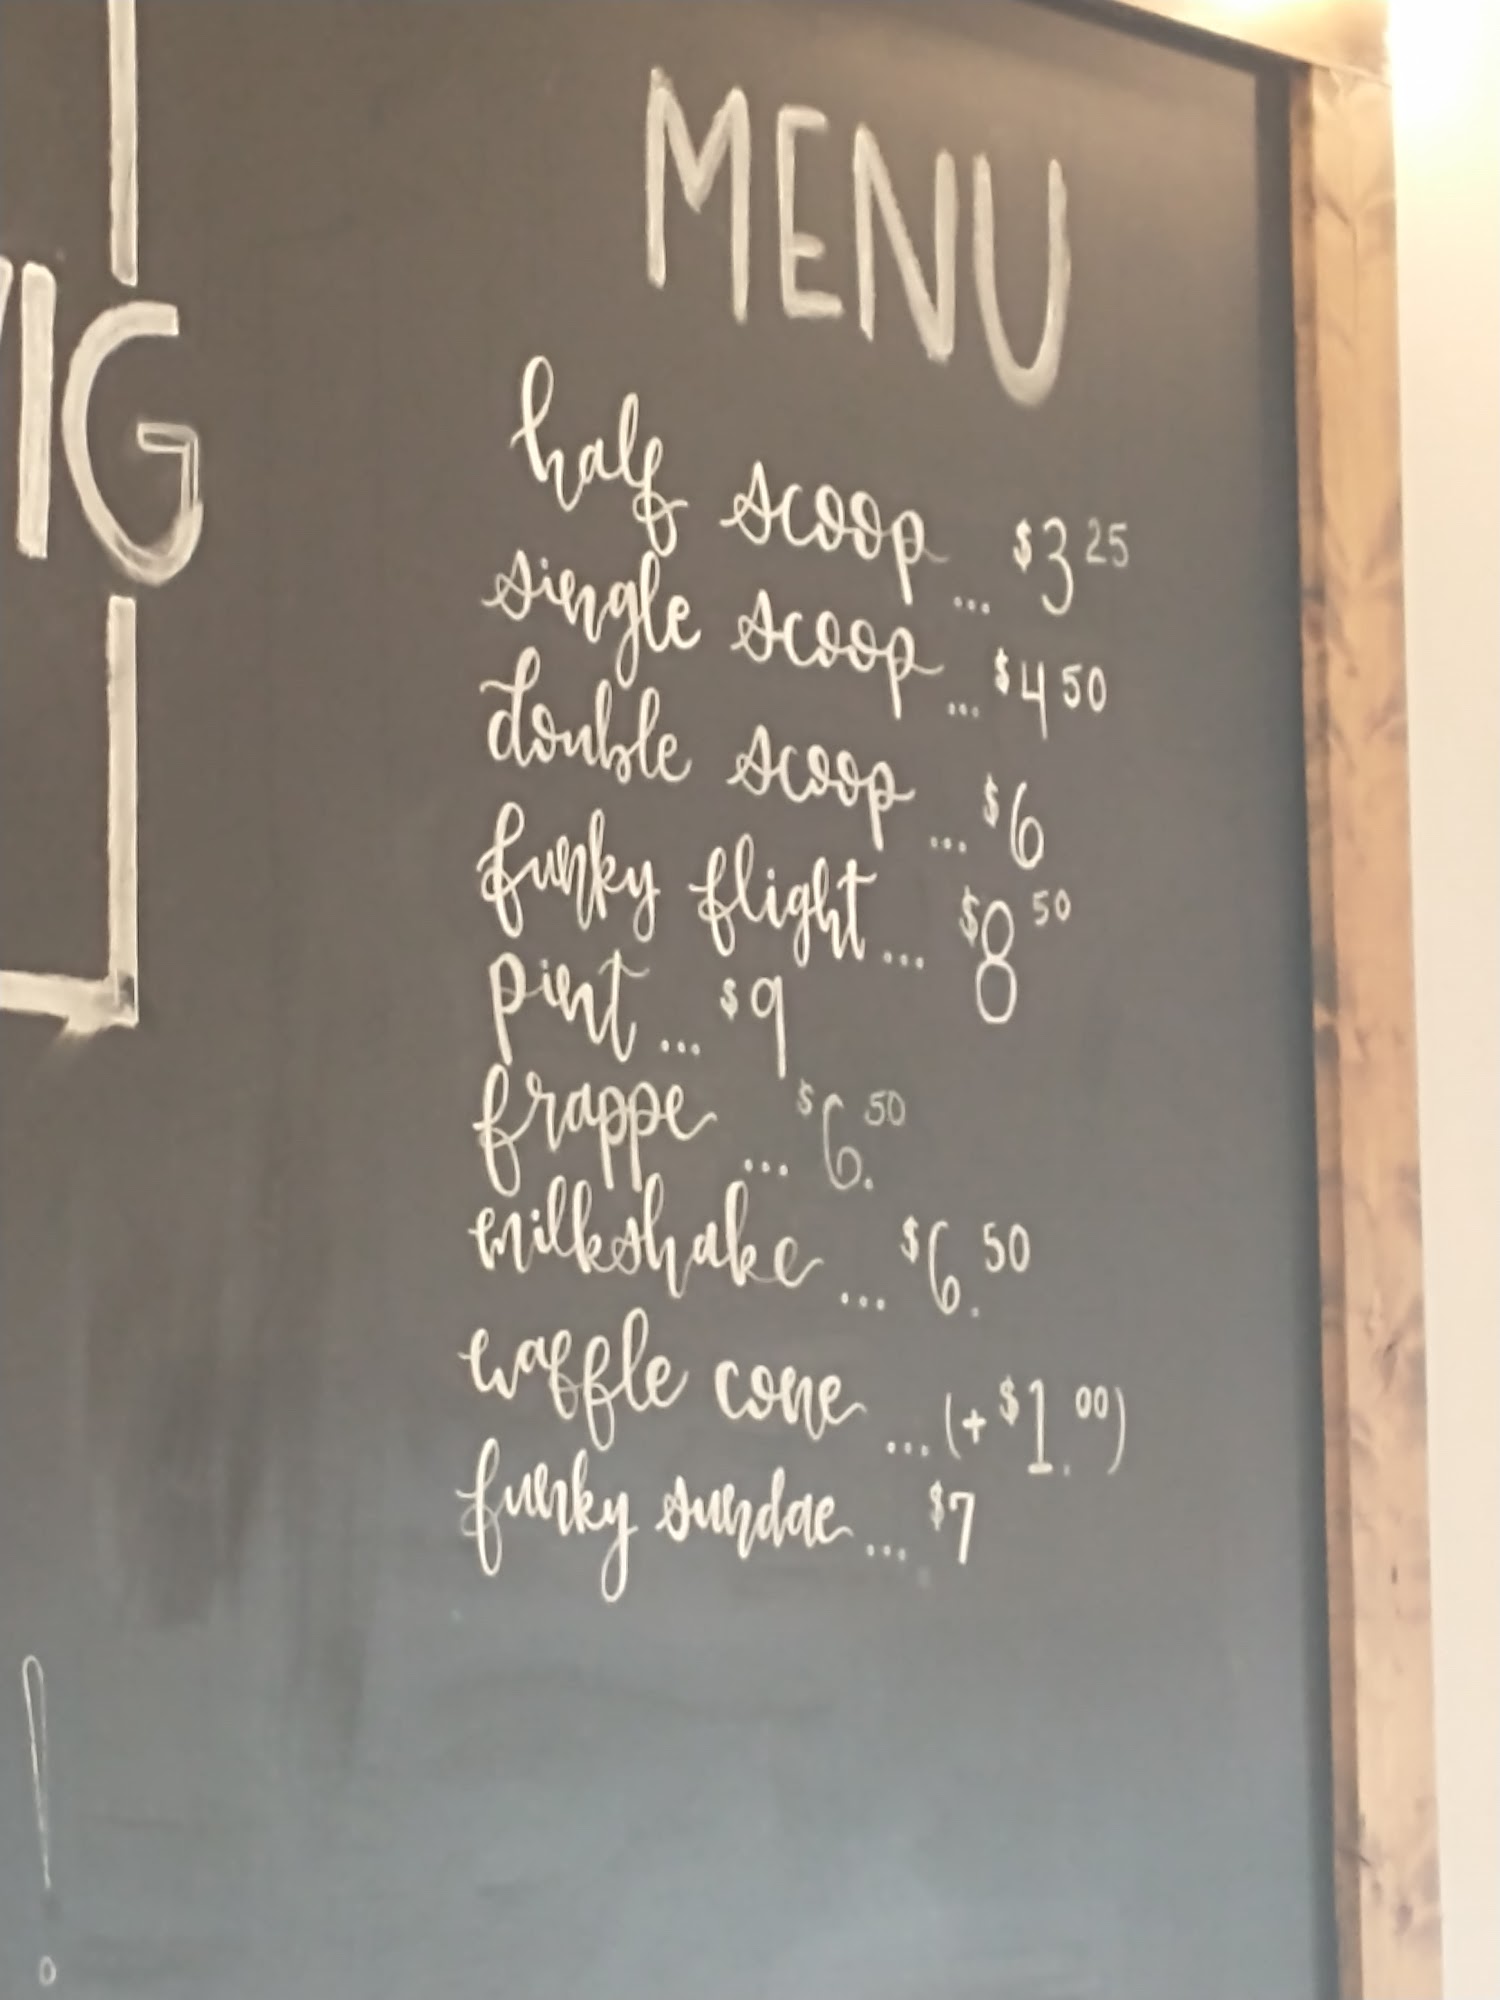 MENU
half scoop ... $3 25
single scoop ... $4 50
double scoop ... $6
funky flight ... $8 50
pint ... $9
frappe ... $6.50
milkshake ... $6.50
waffle cone ... (+$1.00)
funky sundae ... $7
IG
!